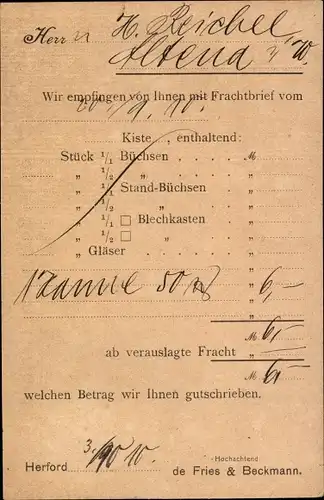 Herrn H. Reichel
Altena i/W.
Wir empfingen von Ihnen mit Frachtbrief vom
Kiste, enthaltend:
Stück 1/1 Büchsen . . . . . M
" 1/2 " . . . . . "
" 1/1 Stand-Büchsen . . . "
" 1/2 " " . . . "
" 1/1 □ Blechkasten . . "
" 1/2 □ " . . "
" Gläser . . . . . . "
1 Kanne 50 " 6,–
M 6,–
ab verauslagte Fracht " –
M 6,–
welchen Betrag wir Ihnen gutschrieben.
Hochachtend
Herford de Fries & Beckmann.